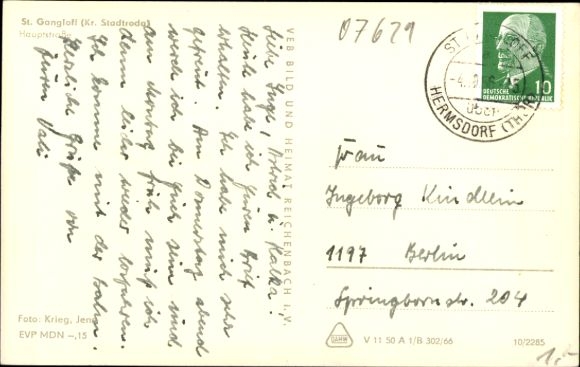 St. Gangloff (Kr. Stadtroda)
Hauptstraße
07629
Liebe Inge, Astrid u. Katka!
Heute habe ich Euren Brief
erhalten. Ich habe mich sehr
gefreut. Am Donnerstag abend
werde ich bei Euch sein und
am Montag früh muß ich
dann leider wieder losfahren.
Ich komme mit der Bahn.
Herzliche Grüße von
Eurem Vati
VEB BILD UND HEIMAT REICHENBACH i. V.
Foto: Krieg, Jena
EVP MDN –,15
ST
über
HERMSDORF (TH
DEUTSCHE
DEMOKRATISCHE REPUBLIK
10
Frau
Ingeborg Kindlein
1197 Berlin
Springbornstr. 204
V 11 50 A 1/B 302/66
10/2285
1,-